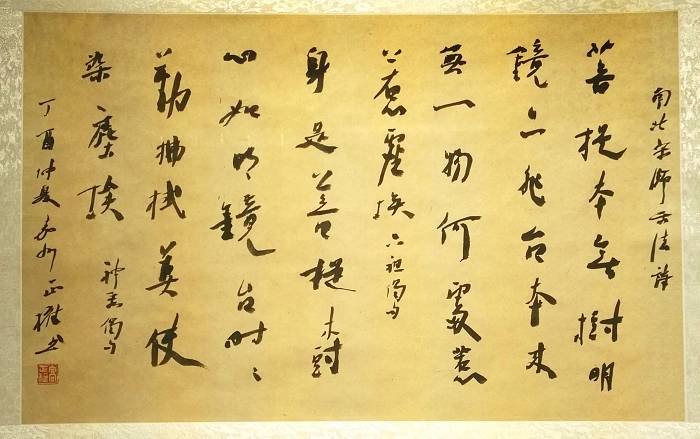 南北宗師示法詩
菩提本無樹明
鏡亦非台本來
無一物何處惹
惹塵埃 六祖偈句
身是菩提樹
心如明鏡台時〻
勤拂拭莫使
染塵埃 神秀偈句
丁酉仲夏 正權书